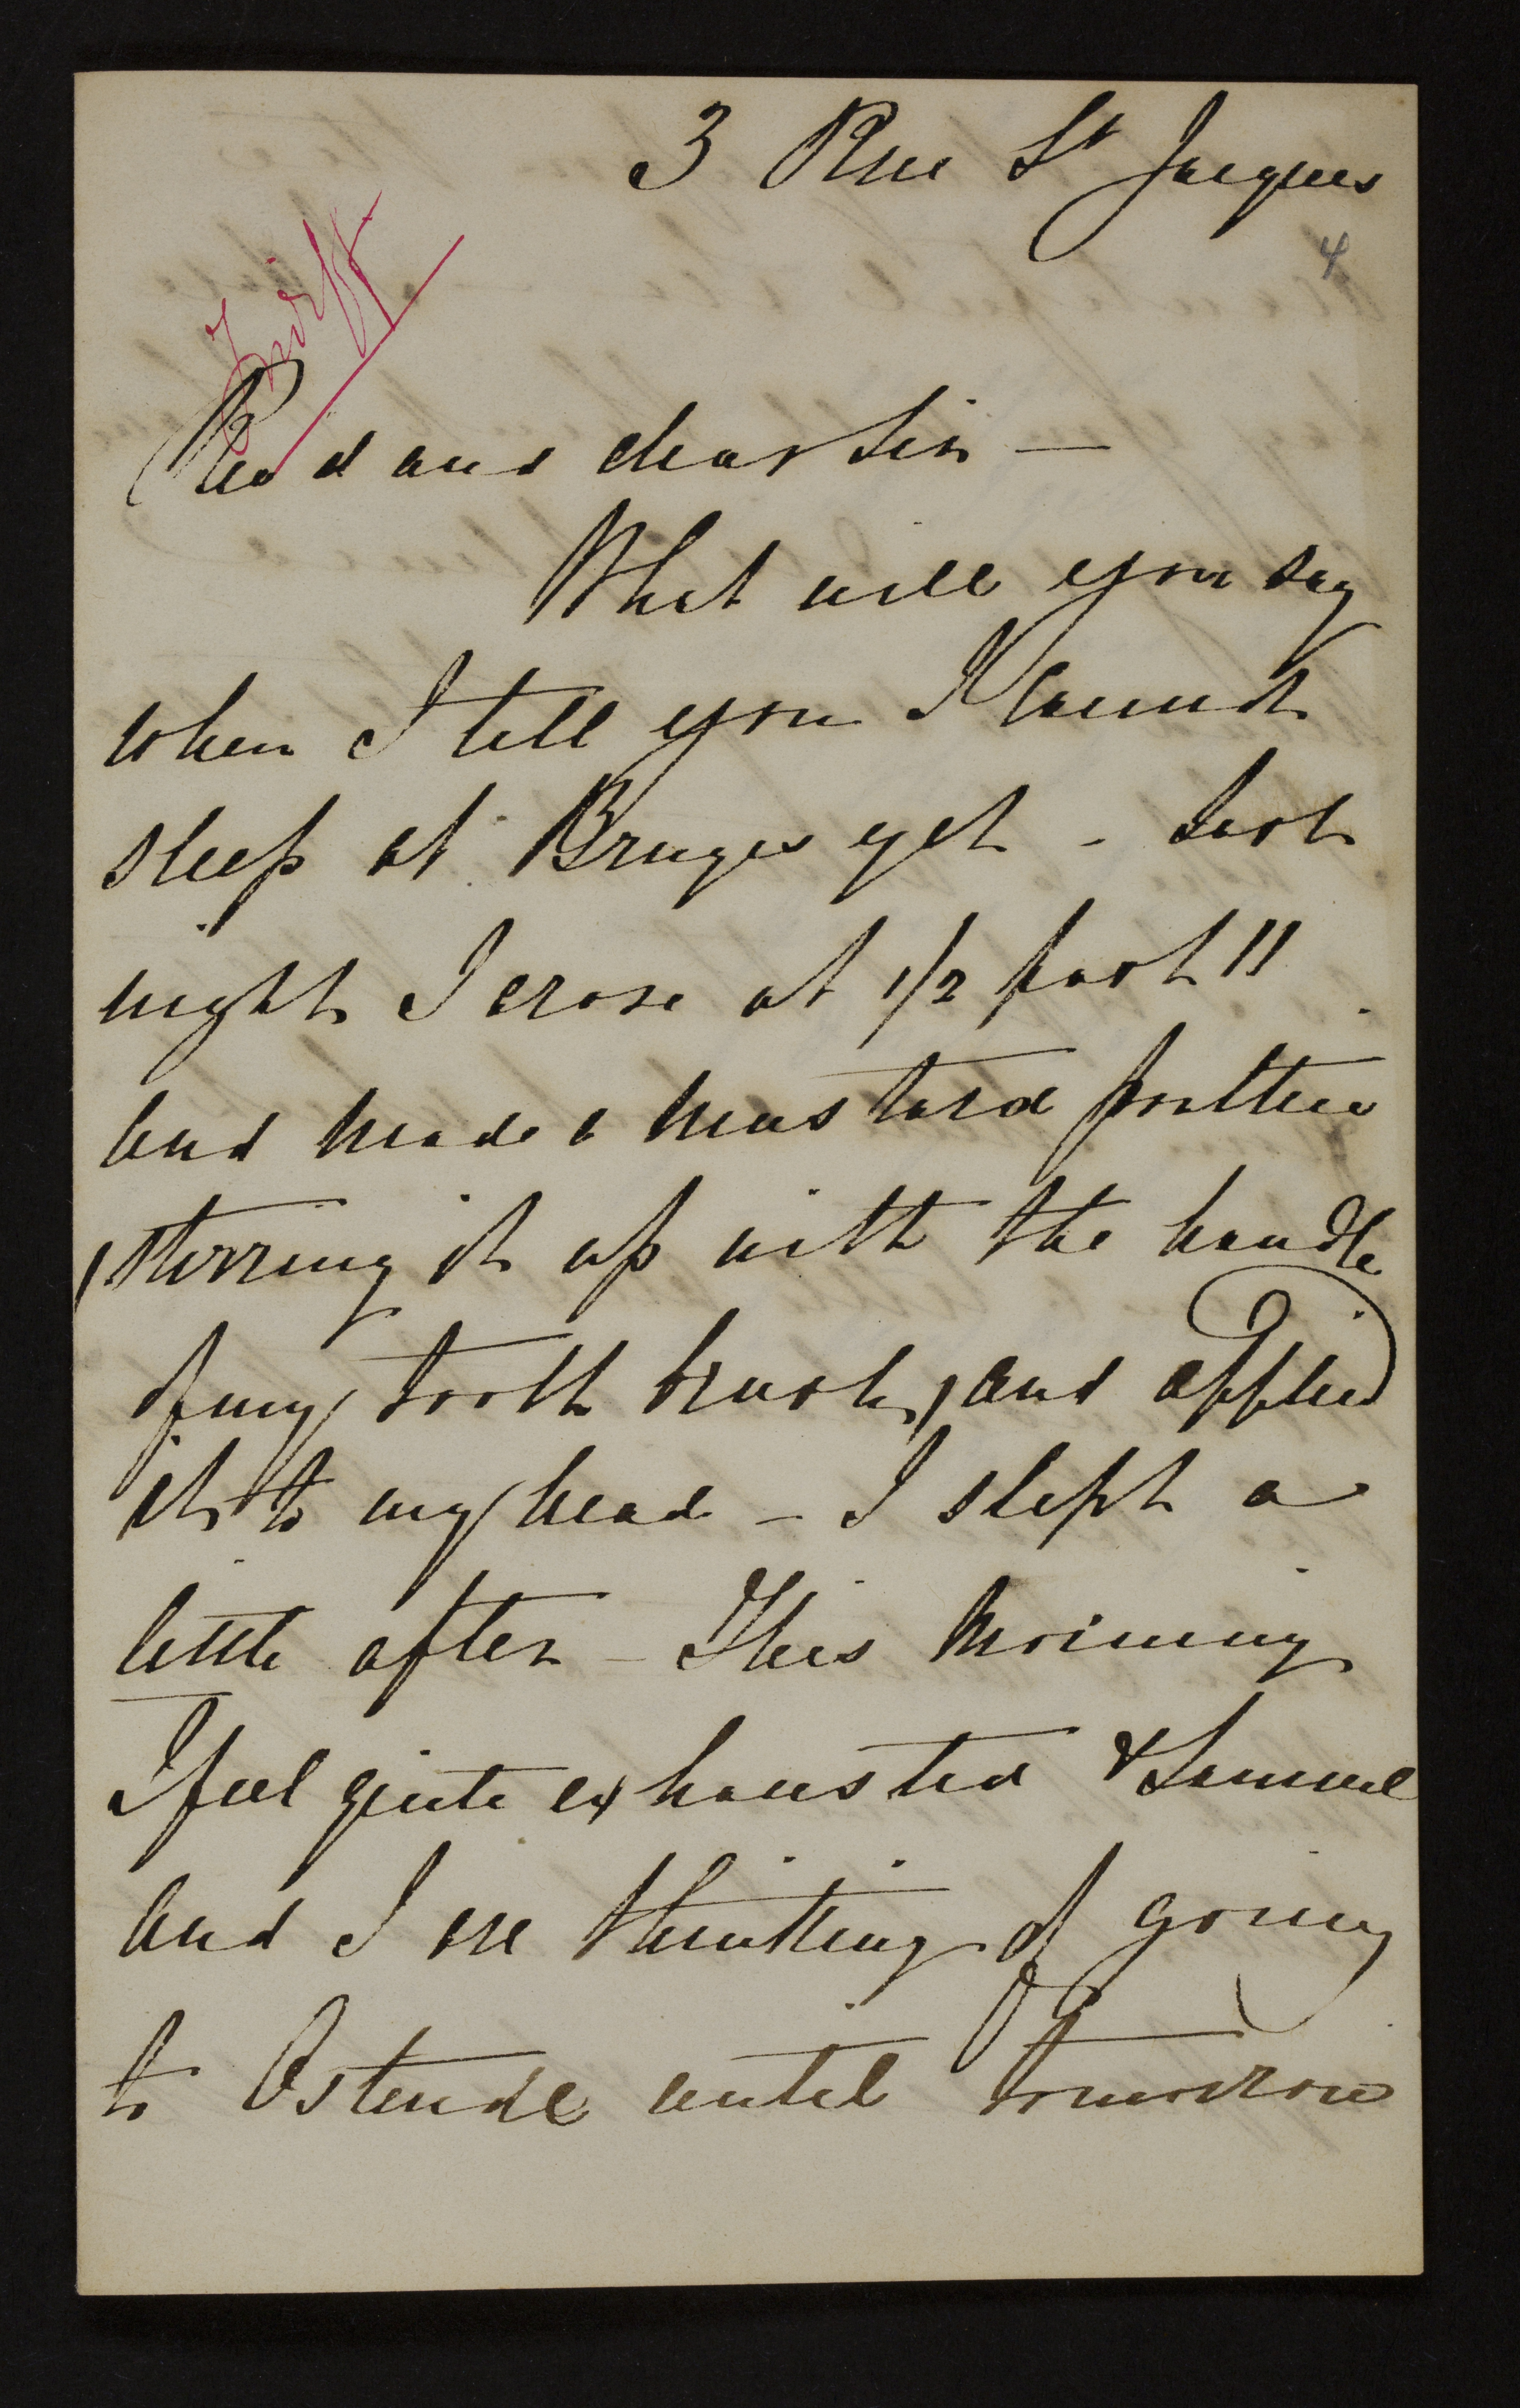 3 Rue St Jacques
4
First
Rev'd and dear Sir —
What will you say
when I tell you I cannot
sleep at Bruges yet - Last
night I arose at 1/2 past 11
and made a mustard poultice
stirring it up with the handle
of my tooth brush, and applied
it to my head - I slept a
little after - This morning
I feel quite exhausted & Samuel
and I are thinking of going
to Ostende until tomorrow